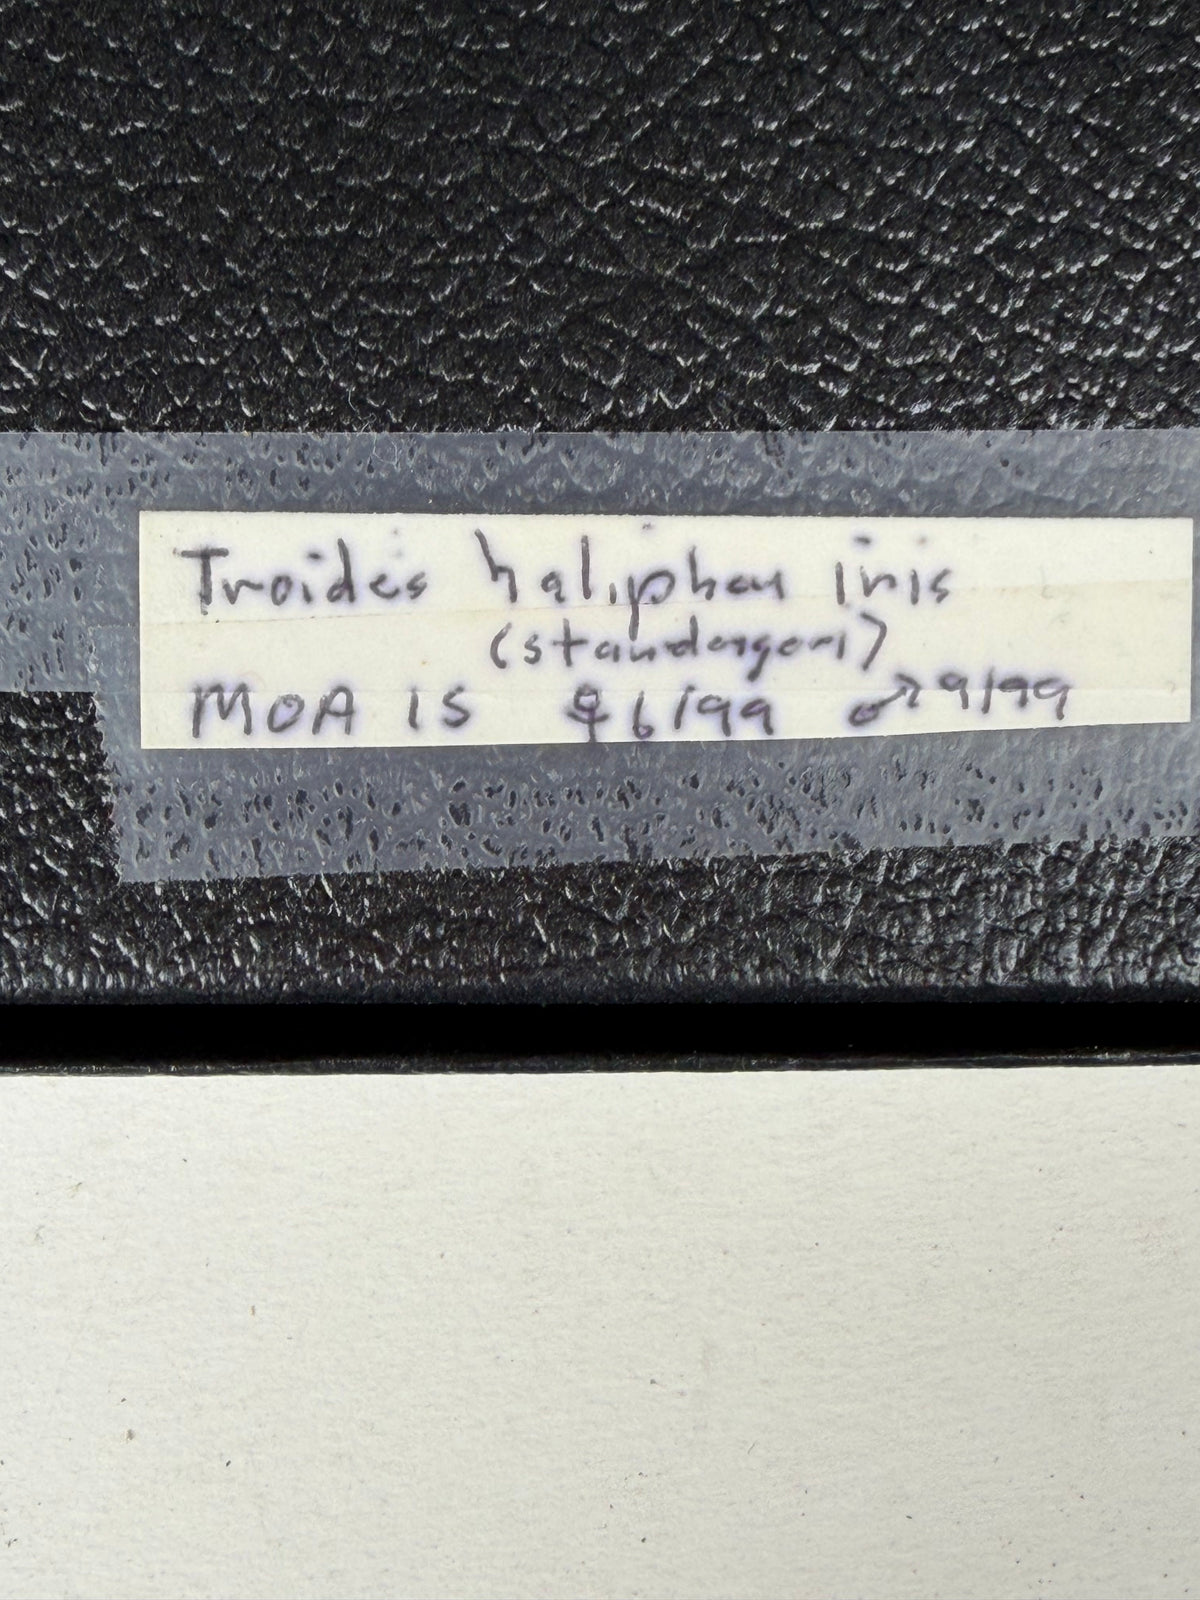 Troides haliphas iris
(standergom)
MOA IS ♀ 6/99 ♂ 9/99